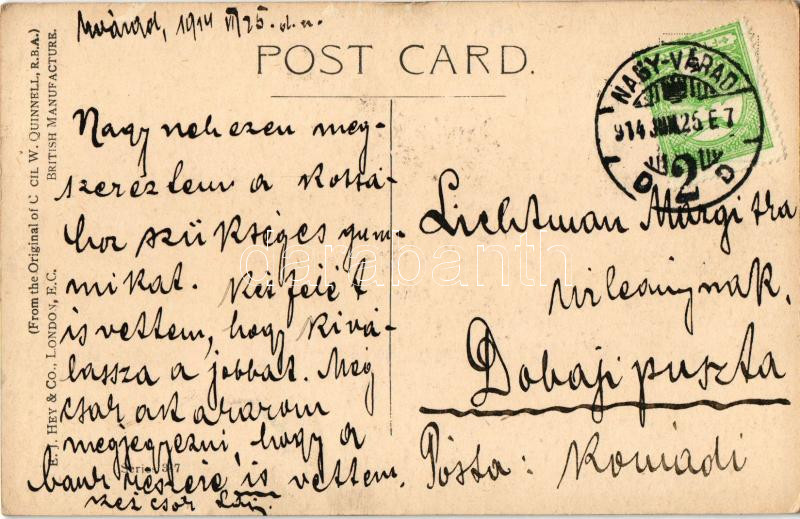 Nvárad, 1914 VI/25. d. u.
POST CARD.
(From the Original of C CIL W. QUINNELL, R.B.A.)
BRITISH MANUFACTURE.
E. J. HEY & CO., LONDON, E.C.
Series 3 7
NAGY-VÁRAD
914 JUN. 25 E 7
D 2 D
Nagy nehezen meg-
szereztem a kossá-
hor szükséges gum-
mikat. Kétfélét
is vettem, hogy kivá-
lassza a jobbat. Még
csak azt akarom
megjegyezni, hogy a
részére is vettem.
Lichtman Margitka
urleánynak.
Dobaji puszta
Posta: Komádi
darabanth